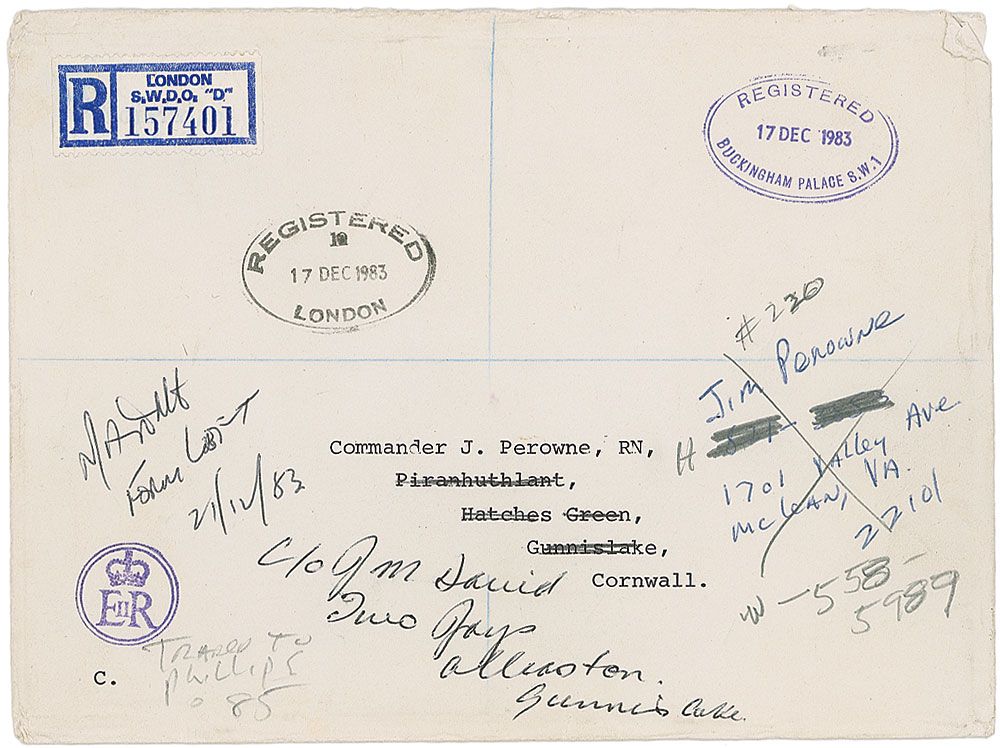 R
LONDON
S.W.D.O. "D"
157401
REGISTERED
17 DEC 1983
BUCKINGHAM PALACE S.W.1
REGISTERED
17 DEC 1983
LONDON
# 230
Jim Perowne
H
1701 Valley Ave
McLean, VA.
22101
W - 558-
5989
Form Left
21/12/83
Commander J. Perowne, RN,
Piranhuthlant,
Hatches Green,
Gunnislake,
Cornwall.
c/o J M David
Two Jays
Gunnislake
EIIR
C.
to
Phillips
85